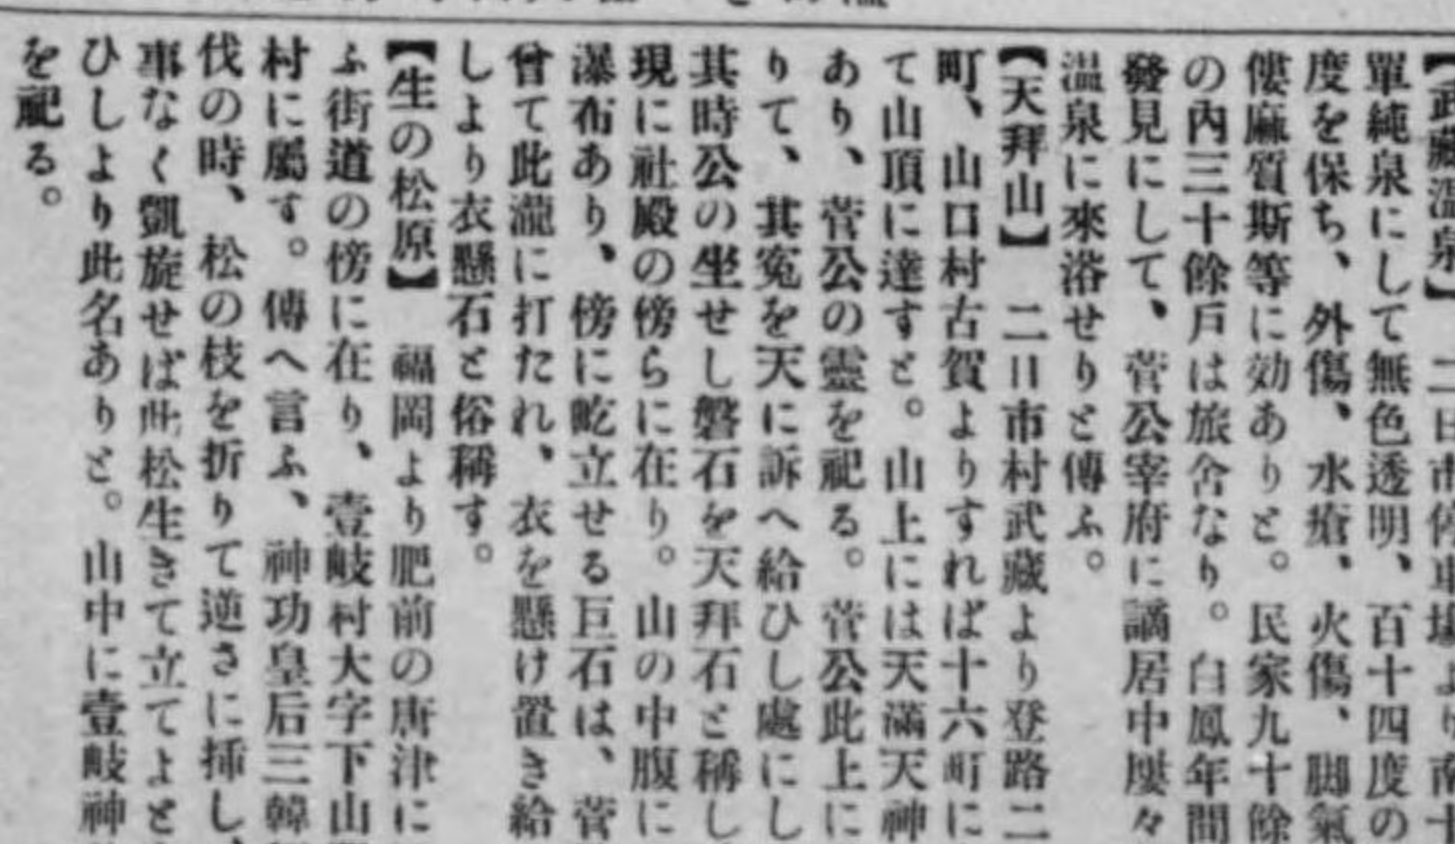 【武藏溫泉】 二日市停車場より南十
單純泉にして無色透明、百十四度の
度を保ち、外傷、水瘡、火傷、脚氣
僂麻質斯等に効ありと。民家九十餘
の內三十餘戶は旅舍なり。白鳳年間
發見にして、菅公宰府に謫居中屢々
溫泉に來浴せりと傳ふ。
【天拜山】 二日市村武藏より登路二
町、山口村古賀よりすれば十六町に
て山頂に達すと。山上には天滿天神
あり、菅公の靈を祀る。菅公此上に
りて、其寃を天に訴へ給ひし處にし
其時公の坐せし磐石を天拜石と稱し
現に社殿の傍らに在り。山の中腹に
瀑布あり、傍に屹立せる巨石は、菅
曾て此瀧に打たれ、衣を懸け置き給
しより衣懸石と俗稱す。
【生の松原】 福岡より肥前の唐津に
ふ街道の傍に在り、壹岐村大字下山
村に屬す。傳へ言ふ、神功皇后三韓
伐の時、松の枝を折りて逆さに揷し、
事なく凱旋せば此松生きて立てよと
ひしより此名ありと。山中に壹岐神
を祀る。